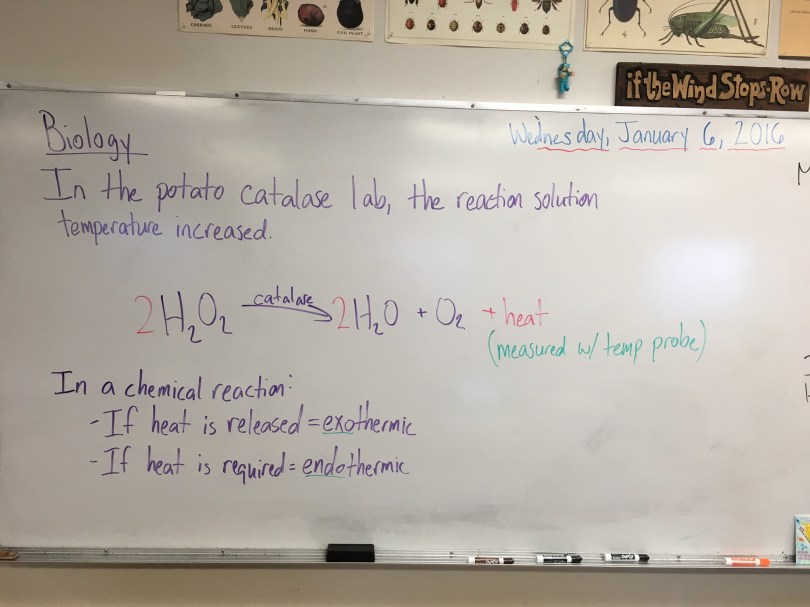 CABBAGE LETTUCE BEANS POTATO EGG PLANT
4
3
if the Wind Stops-Row
Biology
Wednesday, January 6, 2016
In the potato catalase lab, the reaction solution
temperature increased.
2H₂O₂ catalase 2H₂O + O₂ + heat
(measured w/ temp probe)
In a chemical reaction:
- If heat is released = exothermic
- If heat is required = endothermic
EXPO